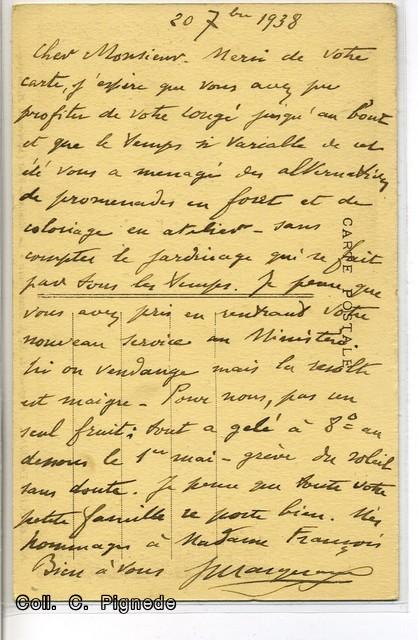 20 7bre 1938
Cher Monsieur - Merci de votre
carte, j'espère que vous avez pu
profiter de votre congé jusqu'au bout
et que le temps si variable de cet
été vous a menagé des alternatives
de promenades en forêt et de
coloriage en atelier - sans
compter le jardinage qui se fait
par tous les temps. Je pense que
vous avez pris en rentrant votre
nouveau service au Ministère.
Ici on vendange mais la récolte
est maigre - Pour nous, pas un
seul fruit; tout a gelé à 8° au
dessous le 1er mai - grève du soleil
sans doute. Je pense que toute votre
petite famille se porte bien. Mes
hommages à Madame François
Bien à vous
CARTE POSTALE
Coll. C. Pignede